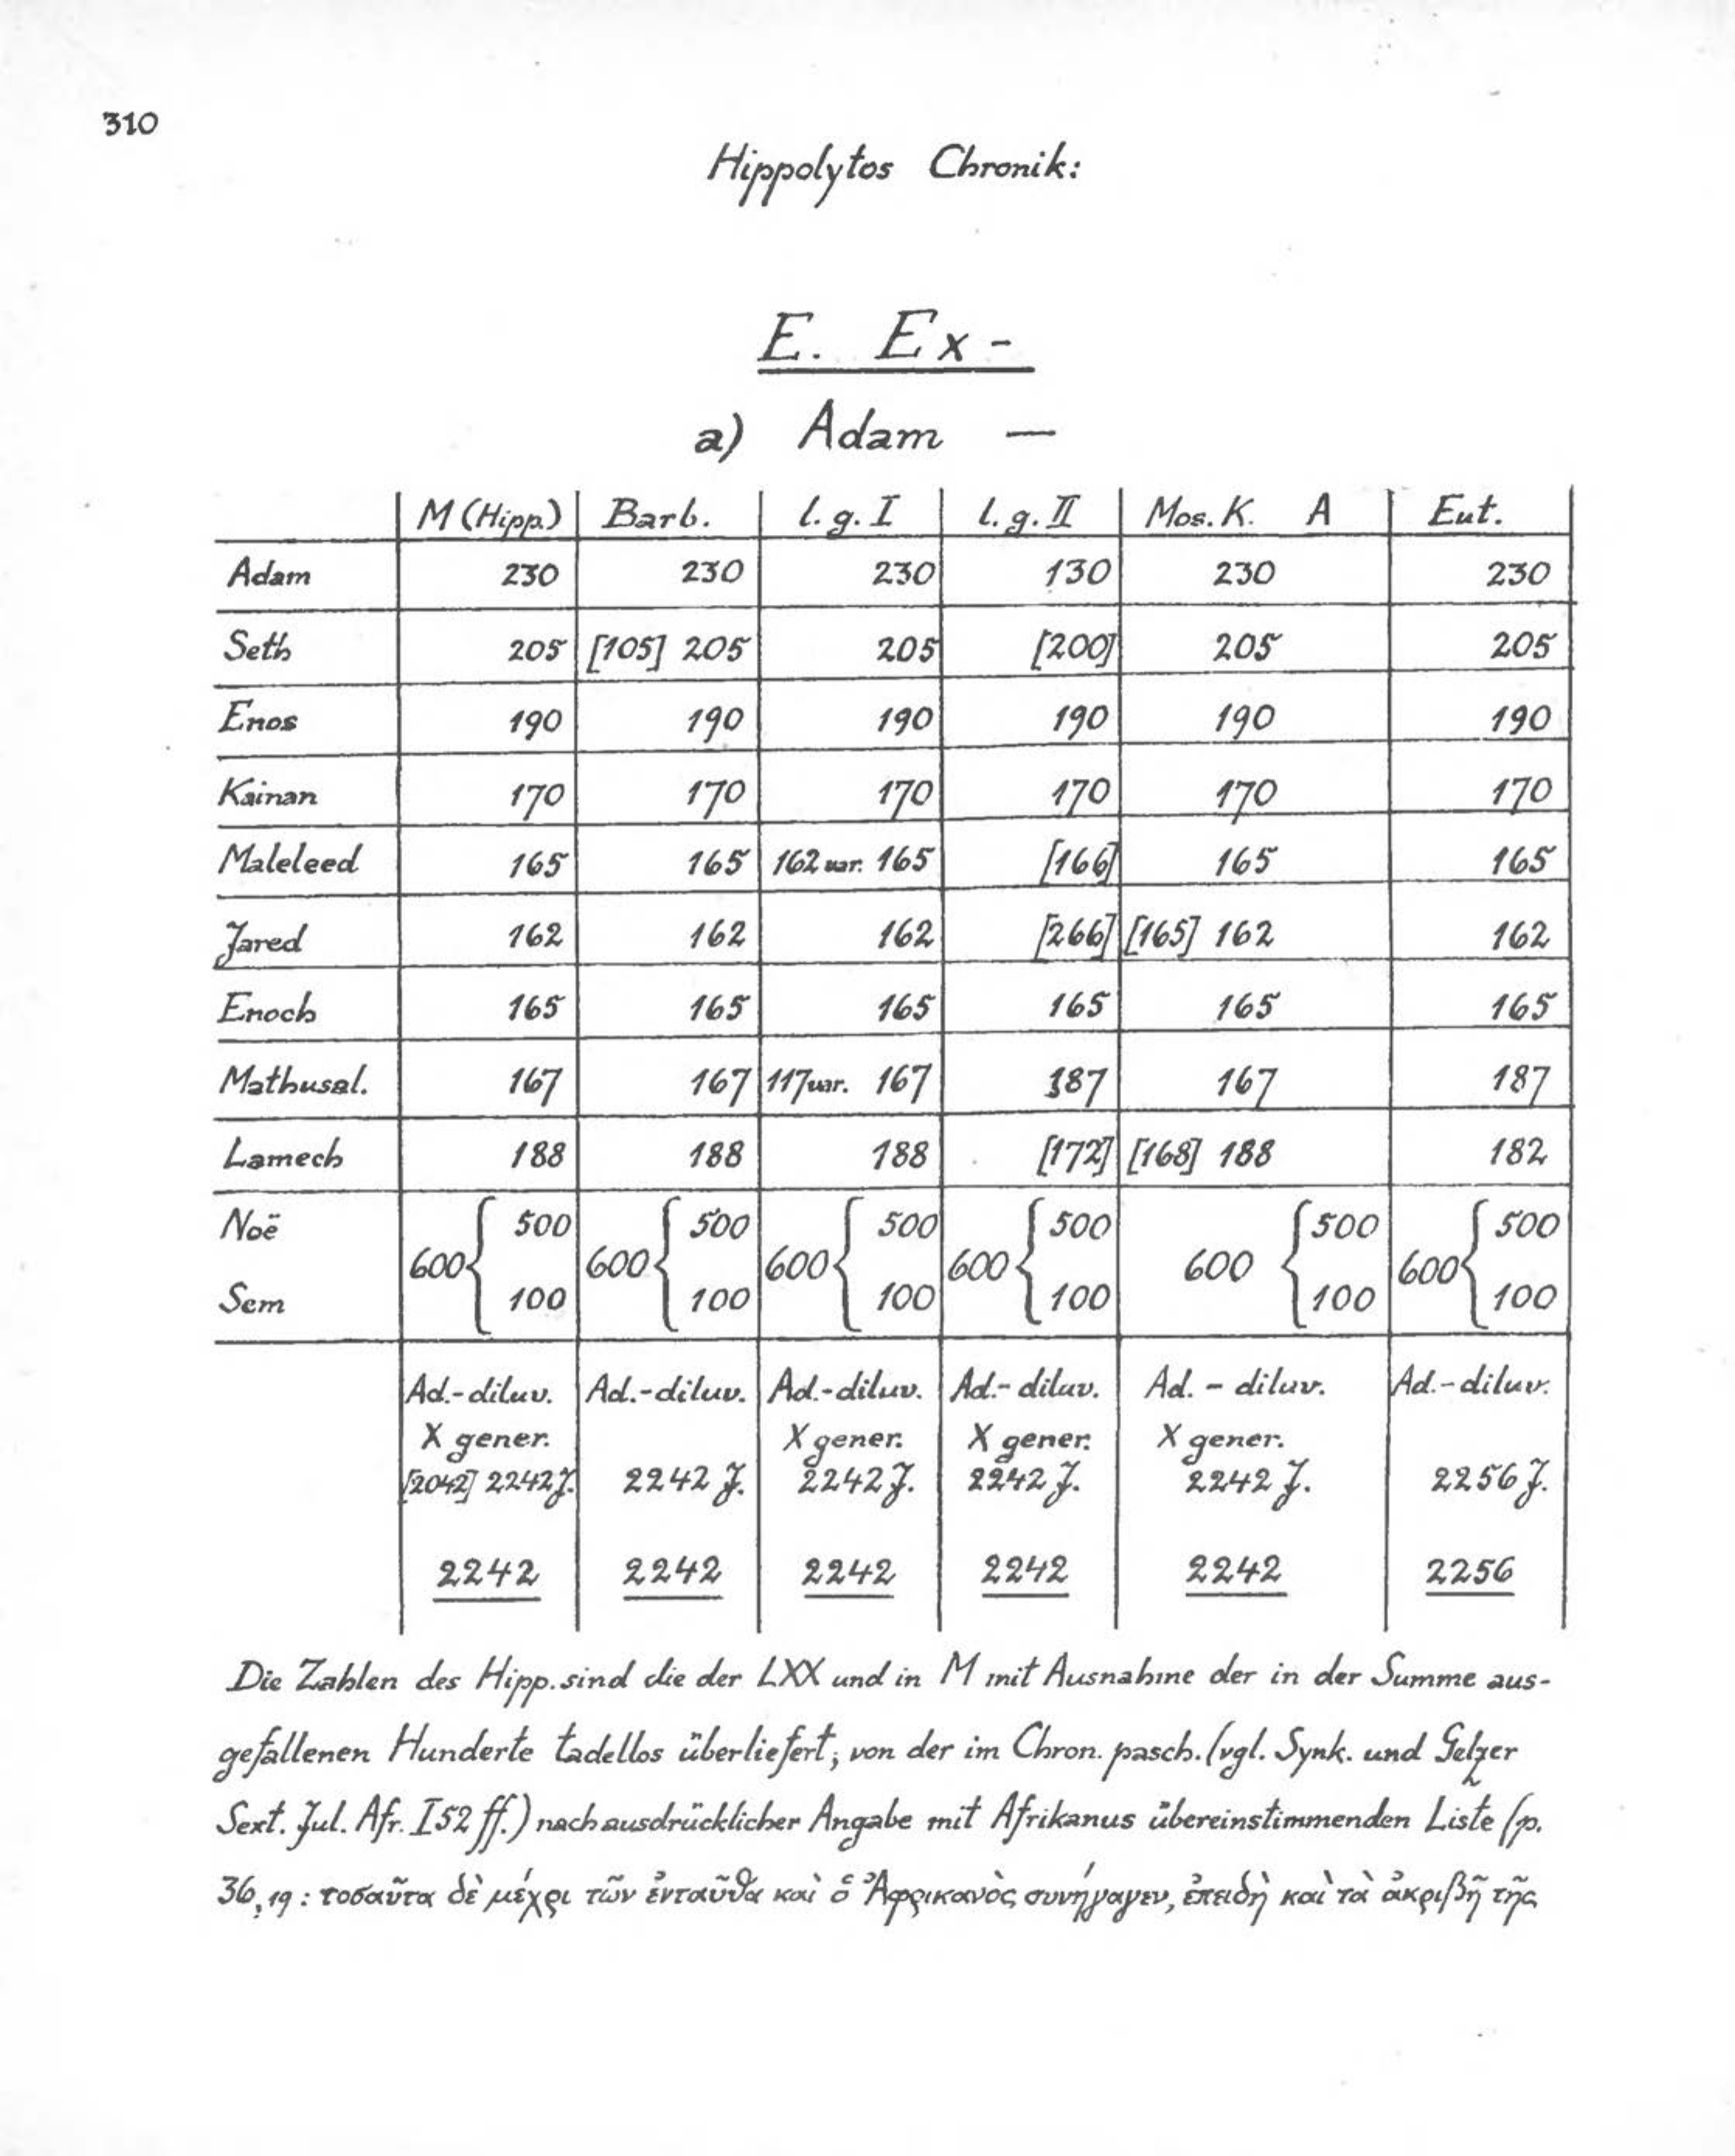 310
Hippolytos Chronik:
E. Ex-
a) Adam —
M (Hipp.) Barb. l. g. I l. g. II Mos. K. A Eut.
Adam 230 230 230 130 230 230
Seth 205 [105] 205 205 [200] 205 205
Enos 190 190 190 190 190 190
Kainan 170 170 170 170 170 170
Maleleed 165 165 162 uar. 165 [166] 165 165
Jared 162 162 162 [266] [165] 162 162
Enoch 165 165 165 165 165 165
Mathusal. 167 167 117 uar. 167 187 167 187
Lamech 188 188 188 [172] [168] 188 182
Noë 500 500 500 500 500 500
600 600 600 600 600 600
Sem 100 100 100 100 100 100
Ad.-diluv. Ad.-diluv. Ad.-diluv. Ad.-diluv. Ad.-diluv. Ad.-diluv.
X gener. X gener. X gener. X gener.
[2042] 2242 J. 2242 J. 2242 J. 2242 J. 2242 J. 2256 J.
2242 2242 2242 2242 2242 2256
Die Zahlen des Hipp. sind die der LXX und in M mit Ausnahme der in der Summe aus-
gefallenen Hunderte tadellos überliefert, von der im Chron. pasch. (vgl. Synk. und Gelzer
Sext. Jul. Afr. I 52 ff.) nach ausdrücklicher Angabe mit Afrikanus übereinstimmenden Liste (p.
36,19: τοσαῦτα δὲ μέχρι τῶν ἐνταῦθα καὶ ὁ Ἀφρικανὸς συνήγαγεν, ἐπειδὴ καὶ τὰ ἀκριβῆ τῆς